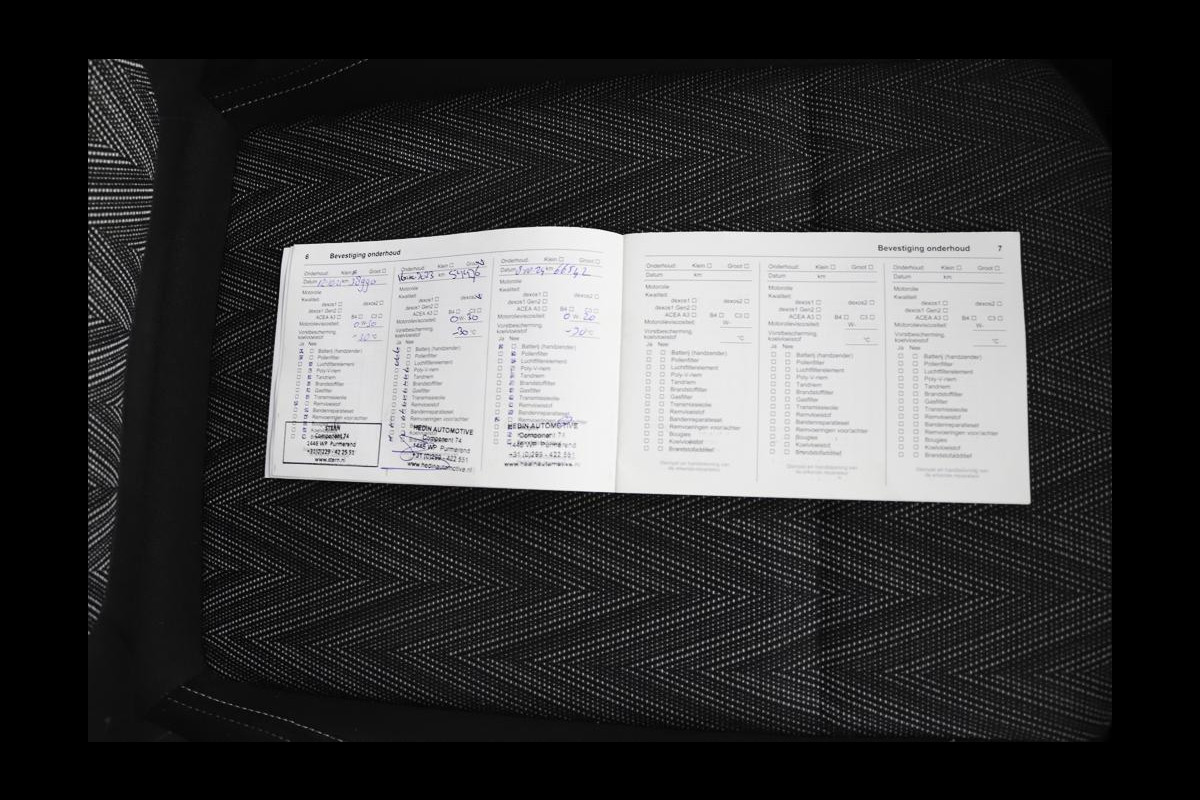 6 Bevestiging onderhoud
Onderhoud: Klein Groot
Datum km
Motorolie
Kwaliteit:
dexos1 dexos2
dexos1 Gen2
ACEA A3 B4 C3
Motorolieviscositeit: 0 W 30
Vorstbescherming koelvloeistof °C
Ja Nee
Batterij (handzender)
Pollenfilter
Luchtfilterelement
Poly-V-riem
Tandriem
Brandstoffilter
Gasfilter
Transmissieolie
Remvloeistof
Bandenreparatieset
Remvoeringen voor/achter
STERN
Componist 74
1446 WP Purmerend
www.stern.nl
Onderhoud: Klein Groot
2023 km
Motorolie
Kwaliteit:
dexos1 dexos2
dexos1 Gen2
ACEA A3 B4 C3
Motorolieviscositeit: 0 W 30
Vorstbescherming koelvloeistof -30 °C
Ja Nee
Batterij (handzender)
Pollenfilter
Luchtfilterelement
Poly-V-riem
Tandriem
Brandstoffilter
Gasfilter
Transmissieolie
Remvloeistof
Bandenreparatieset
Remvoeringen voor/achter
HEDIN AUTOMOTIVE
74
1446 WP Purmerend
+31 (0)299 - 422 551
www.hedinautomotive.nl
Onderhoud: Klein Groot
Datum km
Motorolie
Kwaliteit:
dexos1 dexos2
dexos1 Gen2
ACEA A3 B4 C3
Motorolieviscositeit: 0 W
Vorstbescherming koelvloeistof °C
Ja Nee
Batterij (handzender)
Pollenfilter
Luchtfilterelement
Poly-V-riem
Tandriem
Brandstoffilter
Gasfilter
Transmissieolie
Remvloeistof
Bandenreparatieset
HEDIN AUTOMOTIVE
74
1446 WP Purmerend
+31 (0)299 - 422 551
www.hedinautomotive.nl
Bevestiging onderhoud 7
Onderhoud: Klein Groot
Datum km
Motorolie
Kwaliteit:
dexos1 dexos2
dexos1 Gen2
ACEA A3 B4 C3
Motorolieviscositeit: W-
Vorstbescherming
koelvloeistof °C
Ja Nee
Batterij (handzender)
Pollenfilter
Luchtfilterelement
Poly-V-riem
Tandriem
Brandstoffilter
Gasfilter
Transmissieolie
Remvloeistof
Bandenreparatieset
Remvoeringen voor/achter
Bougies
Koelvloeistof
Brandstofadditief
Stempel en handtekening van
de erkende reparateur
Onderhoud: Klein Groot
Datum km
Motorolie
Kwaliteit:
dexos1 dexos2
dexos1 Gen2
ACEA A3 B4 C3
Motorolieviscositeit: W-
Vorstbescherming
koelvloeistof °C
Ja Nee
Batterij (handzender)
Pollenfilter
Luchtfilterelement
Poly-V-riem
Tandriem
Brandstoffilter
Gasfilter
Transmissieolie
Remvloeistof
Bandenreparatieset
Remvoeringen voor/achter
Bougies
Koelvloeistof
Brandstofadditief
Stempel en handtekening van
de erkende reparateur
Onderhoud: Klein Groot
Datum km
Motorolie
Kwaliteit:
dexos1 dexos2
dexos1 Gen2
ACEA A3 B4 C3
Motorolieviscositeit: W-
Vorstbescherming
koelvloeistof °C
Ja Nee
Batterij (handzender)
Pollenfilter
Luchtfilterelement
Poly-V-riem
Tandriem
Brandstoffilter
Gasfilter
Transmissieolie
Remvloeistof
Bandenreparatieset
Remvoeringen voor/achter
Bougies
Koelvloeistof
Brandstofadditief
Stempel en handtekening van
de erkende reparateur